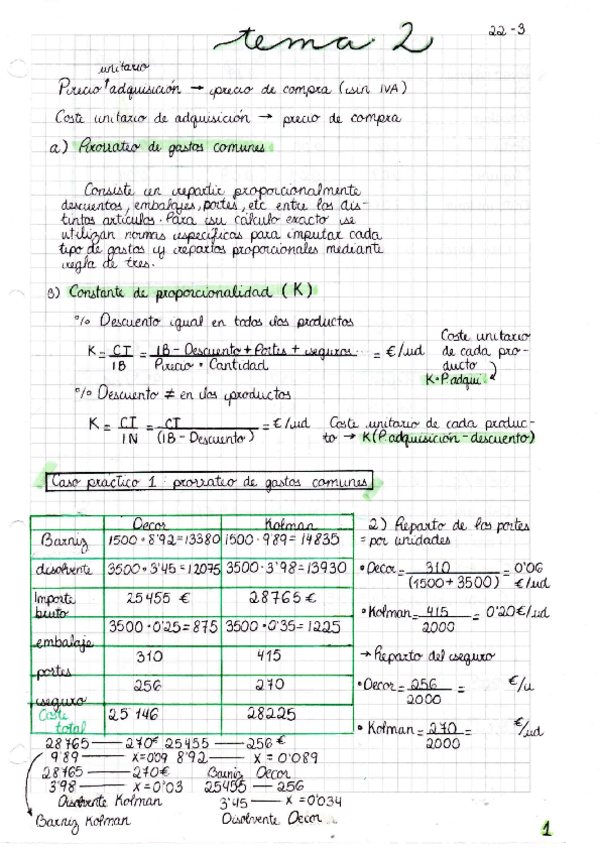 tema 2
22-3
unitario
Precio ↑ adquisición → precio de compra (sin IVA)
Coste unitario de adquisición → precio de compra
a) Prorrateo de gastos comunes
Consiste en repartir proporcionalmente
descuentos, embalajes, portes, etc entre los dis-
tintos artículos. Para su cálculo exacto se
utilizan normas específicas para imputar cada
tipo de gastos y repartos proporcionales mediante
regla de tres.
B) Constante de proporcionalidad (K)
% Descuento igual en todos los productos
K = CT / IB = IB - Descuento + Portes + seguros... / Precio · Cantidad = €/ud
Coste unitario
de cada pro-
ducto
K · P.adqui.
% Descuento ≠ en los productos
K = CT / IN = CT / (IB - Descuento) = €/ud
Coste unitario de cada produc-
to → K(P.adquisición - descuento)
Caso práctico 1: prorrateo de gastos comunes
Decor Kolman
Barniz 1500 · 8'92 = 13380 1500 · 9'89 = 14835
disolvente 3500 · 3'45 = 12075 3500 · 3'98 = 13930
Importe bruto 25455 € 28765 €
embalaje 3500 · 0'25 = 875 3500 · 0'35 = 1225
portes 310 415
seguro 256 270
Coste total 25 146 28225
2) Reparto de los portes
= por unidades
• Decor = 310 / (1500 + 3500) = 0'06 €/ud
• Kolman = 415 / 2000 = 0'20 €/ud
→ Reparto del seguro
• Decor = 256 / 2000 = €/u
• Kolman = 270 / 2000 = €/ud
28765 —— 270€ 25455 —— 256 €
9'89 —— x = 0'09 8'92 —— x = 0'089
28765 —— 270€ Barniz Decor
3'98 —— x = 0'03 25455 — 256
Disolvente Kolman 3'45 —— x = 0'034
Barniz Kolman Disolvente Decor
1